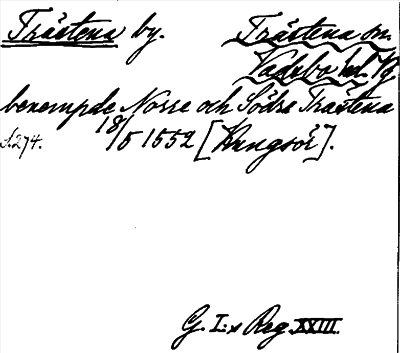 Trästena by. Trästena sn.
Vadsbo hd. Vg
benempde Norre och Södre Trästena
S. 274. 18/5 1552 [Kungsör].
G. I:s Reg. XXIII.